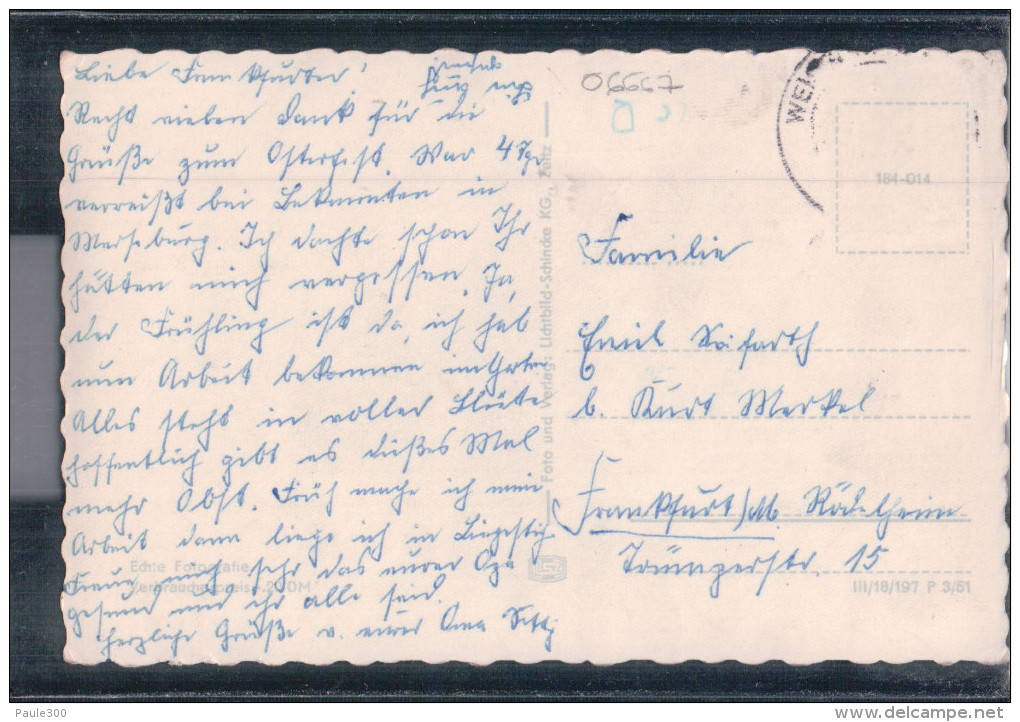 Liebe Frankfurter!
06667
Recht vielen Dank für die
Grüße zum Osterfest. War 4 Tge
verreißt bei Bekannten in
Merseburg. Ich dachte schon Ihr
hätten mich vergessen. Ja,
der Frühling ist da, ich hab
nun Arbeit bekommen im Garten
Alles steht in voller Blüte
hoffentlich gibt es dießes Mal
mehr Obst. Früh mache ich meine
Arbeit dann liege ich in Liegestuhl
Freue mich sehr das eurer Opa
gesund und ihr alle seid.
herzliche Grüße v. eurer Oma
Foto und Verlag: Lichtbild-Schincke KG., Zeitz
Echte Fotografie
Verbraucherpreis -.20 DM
WEI
184-014
Familie
Emil Seifarth
b. Kurt Merkel
Frankfurt/M. Rödelheim
15
III/18/197 P 3/61
Paule300
www.delcampe.net